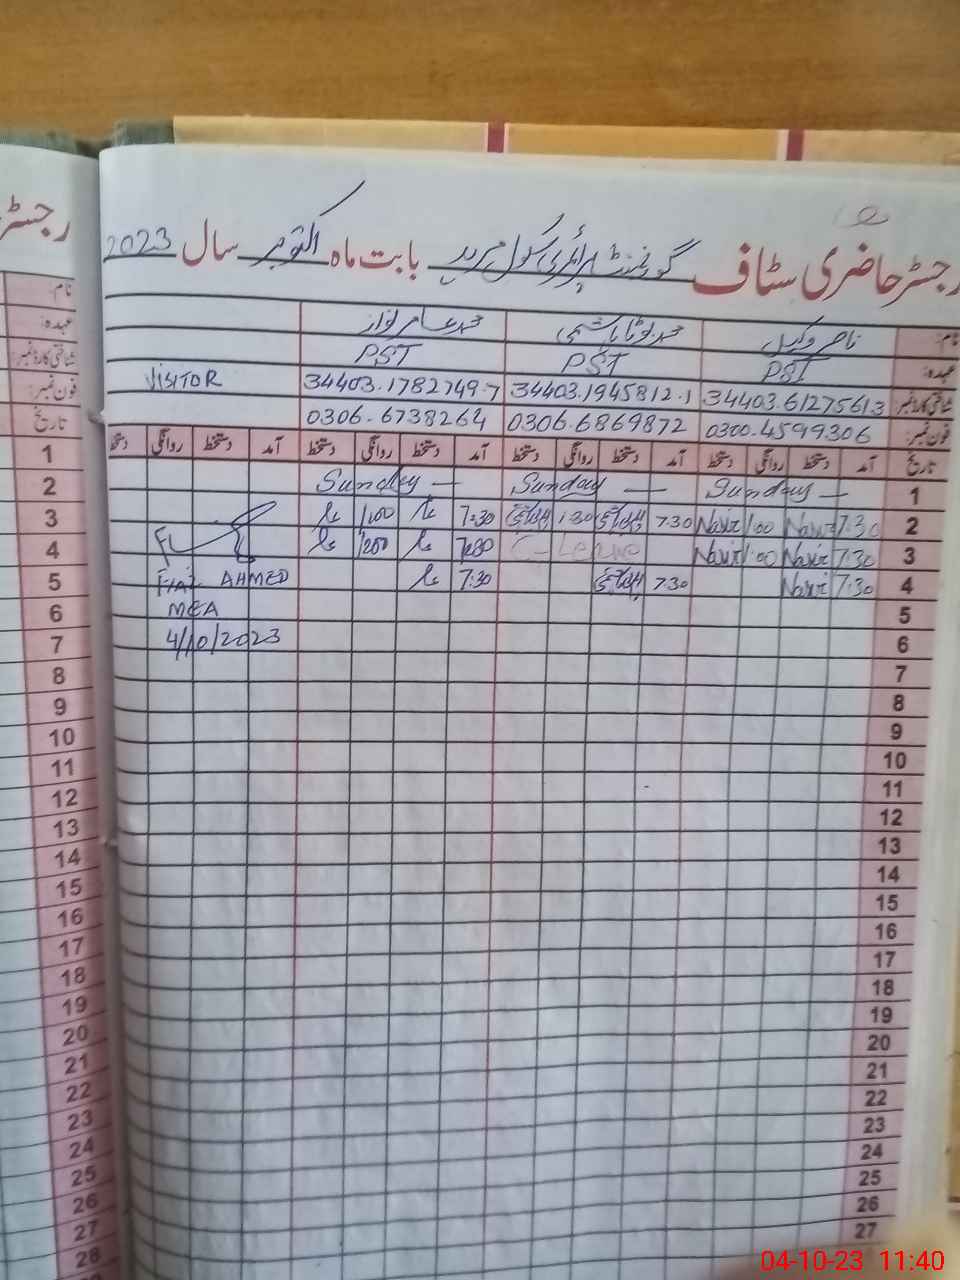 رجسٹر حاضری سٹاف گورنمنٹ پرائمری سکول بابت ماہ اکتوبر سال 2023
نام: ناصر وکیل محمد بوٹا ہاشمی محمد عامر نواز
عہدہ: PST PST PST
شناختی کارڈ نمبر: 34403.6127561.3 34403.1945812.1 34403.1782749.7 VISITOR
فون نمبر: 0300.4599306 0306.6869872 0306.6738264
تاریخ آمد دستخط روانگی دستخط آمد دستخط روانگی دستخط آمد دستخط روانگی دستخط آمد دستخط روانگی دستخط
1 Sunday — Sunday — Sunday —
2 7:30 Nasir 1:00 Nasir 7:30 1:30 7:30 1:00
3 7:30 Nasir 1:00 Nasir C-Leave 7:30 1:00
4 7:30 Nasir 7:30 7:30 AHMED
5 MEA
6 4/10/2023
7
8
9
10
11
12
13
14
15
16
17
18
19
20
21
22
23
24
25
26
27
رجسٹر
نام:
عہدہ:
شناختی کارڈ نمبر:
فون نمبر:
تاریخ
1
2
3
4
5
6
7
8
9
10
11
12
13
14
15
16
17
18
19
20
21
22
23
24
25
26
27
28
04-10-23 11:40